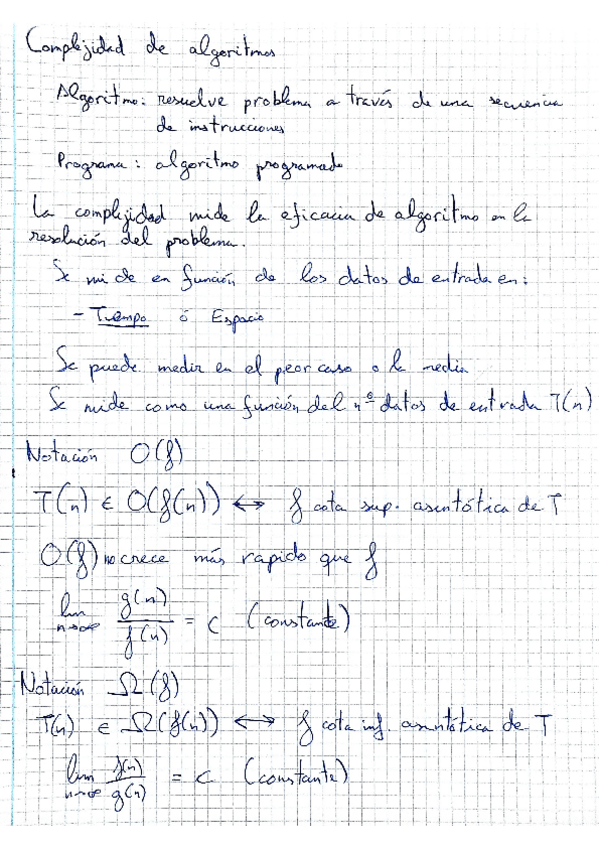 Complejidad de algoritmos
Algoritmo: resuelve problema a través de una secuencia
de instrucciones
Programa: algoritmo programado
La complejidad mide la eficacia de algoritmo en la
resolución del problema.
Se mide en función de los datos de entrada en:
- Tiempo ó Espacio
Se puede medir en el peor caso o la media
Se mide como una función del nº datos de entrada T(n)
Notación O(f)
T(n) ∈ O(f(n)) ↔ f cota sup. asintótica de T
O(f) no crece más rapido que f
lim n→∞ g(n)/f(n) = c (constante)
Notación Ω(f)
T(n) ∈ Ω(f(n)) ↔ f cota inf. asintótica de T
lim n→∞ f(n)/g(n) = c (constante)